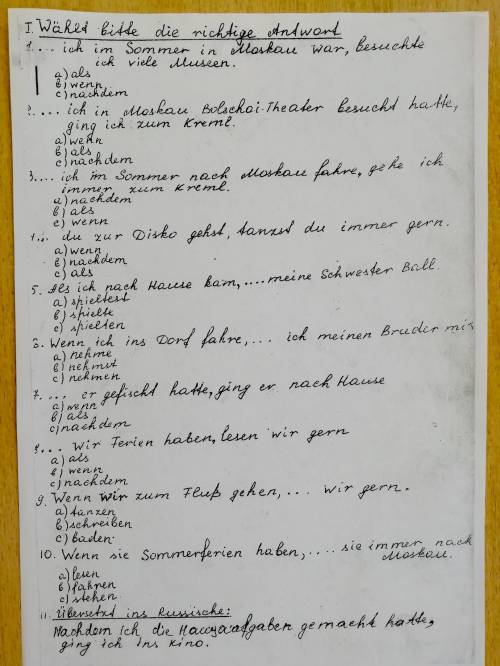 I. Wählt bitte die richtige Antwort
1.... ich im Sommer in Moskau war, besuchte
ich viele Museen.
a) als
b) wenn
c) nachdem
2.... ich in Moskau Bolschoi-Theater besucht hatte,
ging ich zum Kreml.
a) wenn
b) als
c) nachdem
3.... ich im Sommer nach Moskau fahre, gehe ich
immer zum Kreml.
a) nachdem
b) als
c) wenn
4... du zur Disko gehst, tanzst du immer gern.
a) wenn
b) nachdem
c) als
5. Als ich nach Hause kam, .... meine Schwester Ball.
a) spieltest
b) spielte
c) spielten
6. Wenn ich ins Dorf fahre, ... ich meinen Bruder mit
a) nehme
b) nehmst
c) nehmen
7. ... er gefischt hatte, ging er nach Hause
a) wenn
b) als
c) nachdem
8... wir Ferien haben, lesen wir gern
a) als
b) wenn
c) nachdem
9. Wenn wir zum Fluß gehen, ... wir gern.
a) tanzen
b) schreiben
c) baden
10. Wenn sie Sommerferien haben, .... sie immer nach
Moskau.
a) lesen
b) fahren
c) stehen
II. Übersetzt ins Russische:
Nachdem ich die Hausaufgaben gemacht hatte,
ging ich ins Kino.